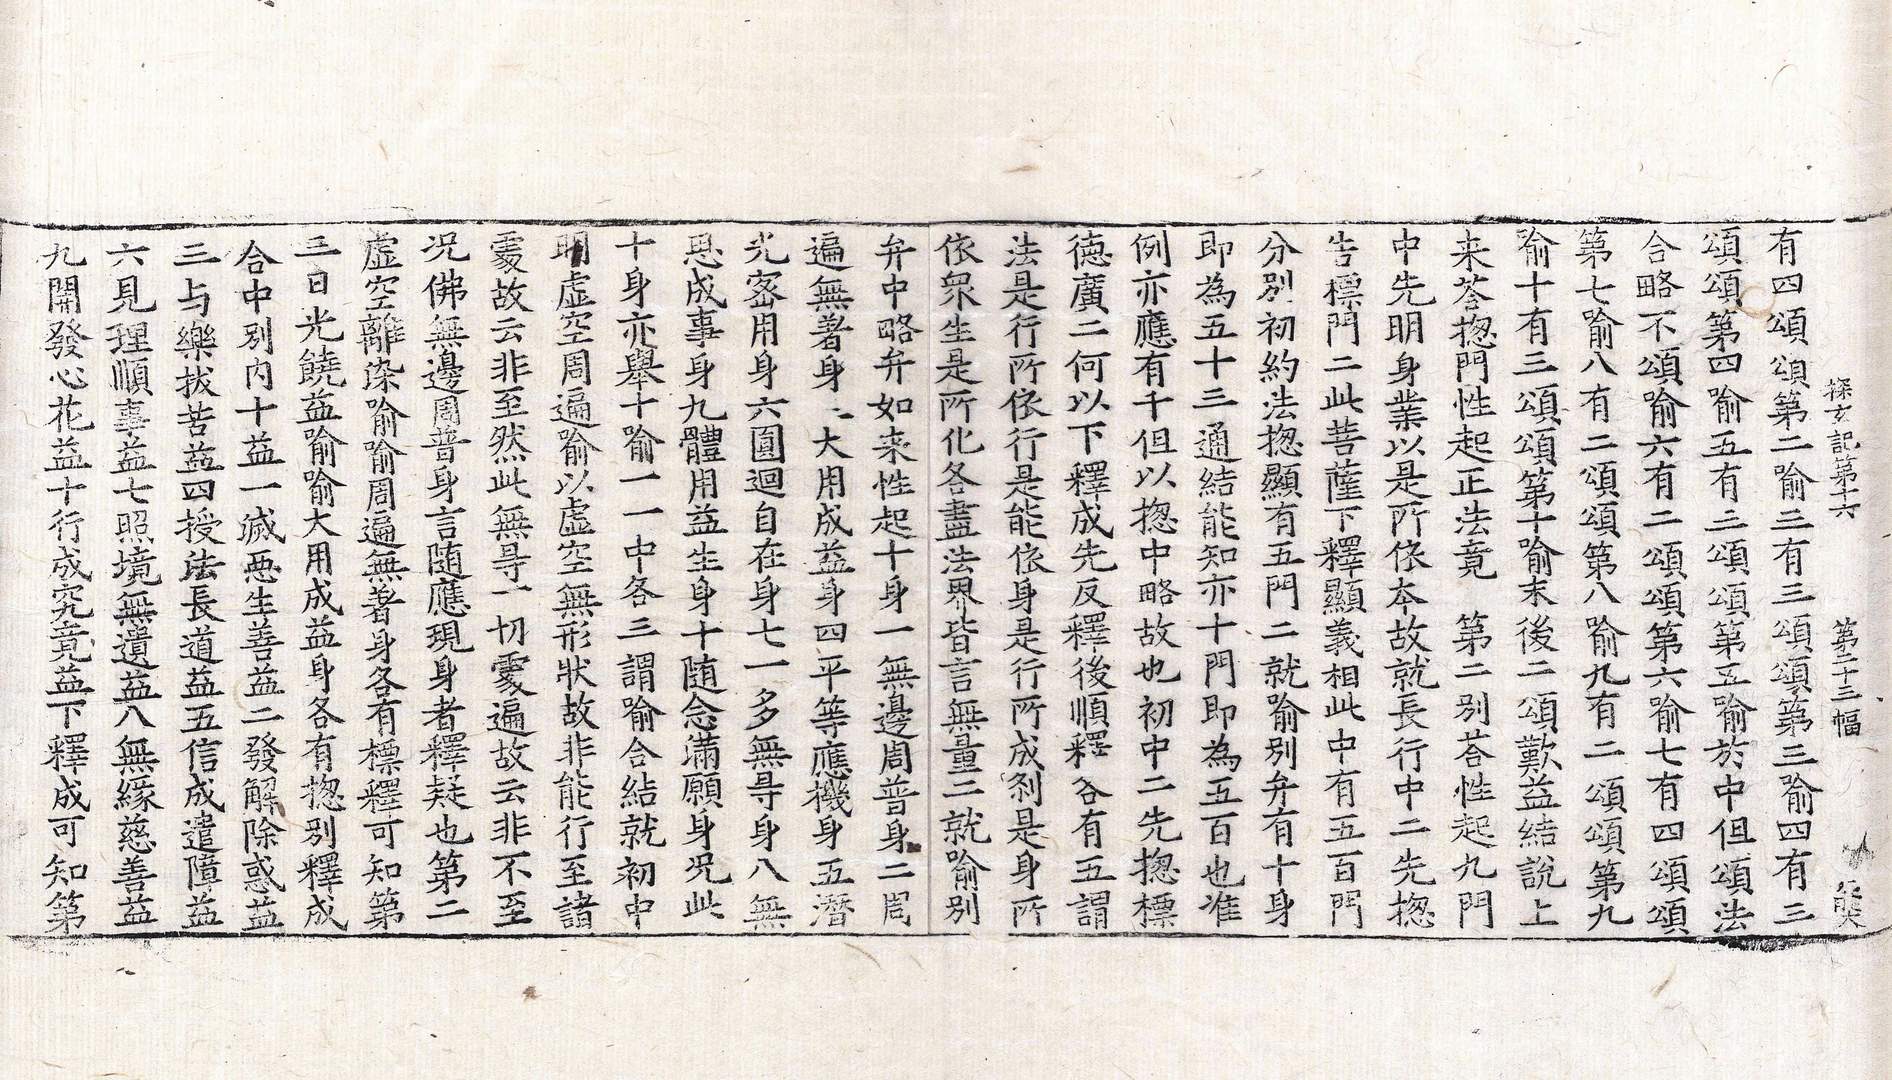 探玄記第十六　第二十三幅
有四頌頌第二喻三有三頌頌第三喻四有三
頌頌第四喻五有二頌頌第五喻於中但頌法
合略不頌喻六有二頌頌第六喻七有四頌頌
第七喻八有二頌頌第八喻九有二頌頌第九
喻十有三頌頌第十喻末後二頌歎益結說上
来荅揔門性起正法竟　第二別荅性起九門
中先明身業以是所依本故就長行中二先揔
告標門二此菩薩下釋顯義相此中有五百門
分別初約法揔顯有五門二就喻別弁有十身
即為五十三通結能知亦十門即為五百也准
例亦應有千但以揔中略故也初中二先揔標
德廣二何以下釋成先反釋後順釋各有五謂
法是行所依行是能依身是行所成刹是身所
依衆生是所化各盡法界皆言無量二就喻別
弁中略弁如来性起十身一無邊周普身二周
遍無著身三大用成益身四平等應機身五潛
光密用身六圓迴自在身七一多無㝵身八無
思成事身九體用益生身十随念滿願身况此
十身亦舉十喻一一中各三謂喻合結就初中
明虛空周遍喻以虛空無形狀故非能行至諸
䖏故云非至然此無㝵一切䖏遍故云非不至
况佛無邊周普身言随應現身者釋疑也第二
虛空離染喻喻周遍無著身各有標釋可知第
三日光饒益喻喻大用成益身各有揔別釋成
合中別內十益一滅惡生善益二發解除惑益
三与樂拔苦益四授法長道益五信成遣障益
六見理順事益七照境無遺益八無緣慈善益
九開發心花益十行成究竟益下釋成可知第